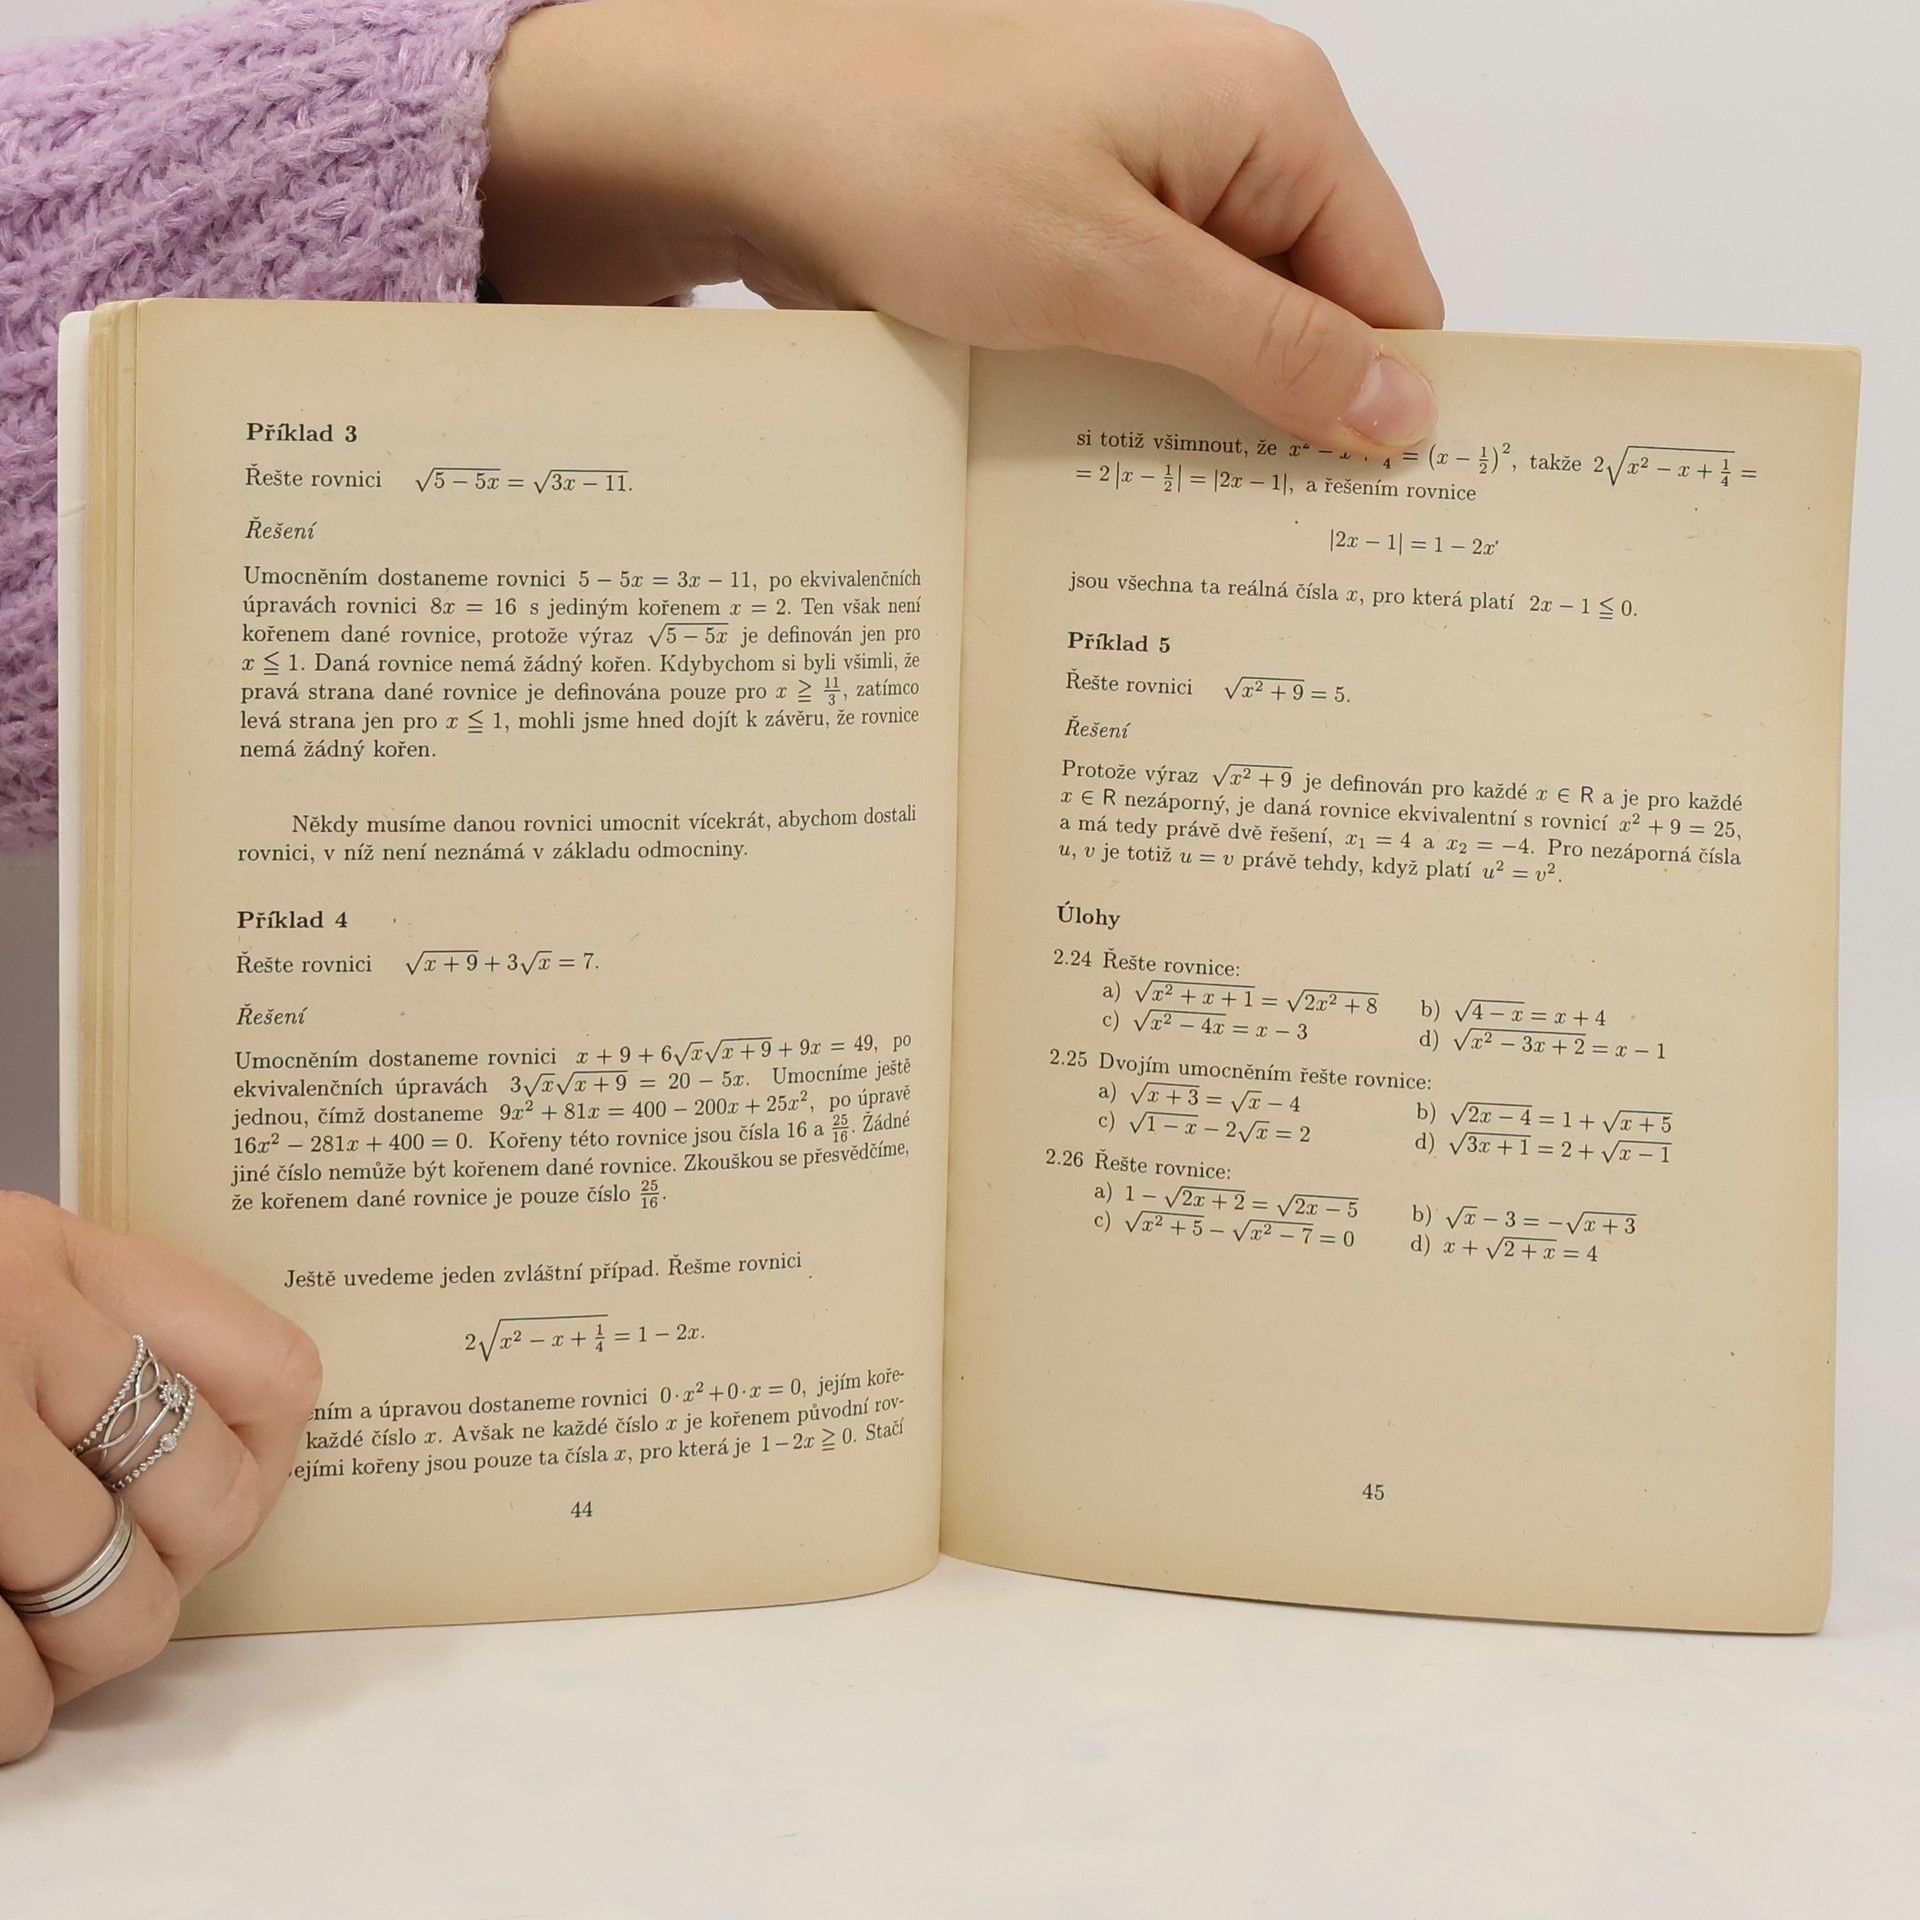 Příklad 3
Řešte rovnici √(5 − 5x) = √(3x − 11).
Řešení
Umocněním dostaneme rovnici 5 − 5x = 3x − 11, po ekvivalenčních
úpravách rovnici 8x = 16 s jediným kořenem x = 2. Ten však není
kořenem dané rovnice, protože výraz √(5 − 5x) je definován jen pro
x ≦ 1. Daná rovnice nemá žádný kořen. Kdybychom si byli všimli, že
pravá strana dané rovnice je definována pouze pro x ≧ 11/3, zatímco
levá strana jen pro x ≦ 1, mohli jsme hned dojít k závěru, že rovnice
nemá žádný kořen.
Někdy musíme danou rovnici umocnit vícekrát, abychom dostali
rovnici, v níž není neznámá v základu odmocniny.
Příklad 4
Řešte rovnici √(x + 9) + 3√x = 7.
Řešení
Umocněním dostaneme rovnici x + 9 + 6√x√(x + 9) + 9x = 49, po
ekvivalenčních úpravách 3√x√(x + 9) = 20 − 5x. Umocníme ještě
jednou, čímž dostaneme 9x² + 81x = 400 − 200x + 25x², po úpravě
16x² − 281x + 400 = 0. Kořeny této rovnice jsou čísla 16 a 25/16. Žádné
jiné číslo nemůže být kořenem dané rovnice. Zkouškou se přesvědčíme,
že kořenem dané rovnice je pouze číslo 25/16.
Ještě uvedeme jeden zvláštní případ. Řešme rovnici
2√(x² − x + 1/4) = 1 − 2x.
a úpravou dostaneme rovnici 0·x² + 0·x = 0, jejím koře-
každé číslo x. Avšak ne každé číslo x je kořenem původní rov-
kořeny jsou pouze ta čísla x, pro která je 1 − 2x ≧ 0. Stačí
44
si totiž všimnout, že = (x − 1/2)², takže 2√(x² − x + 1/4) =
= 2|x − 1/2| = |2x − 1|, a řešením rovnice
|2x − 1| = 1 − 2x
jsou všechna ta reálná čísla x, pro která platí 2x − 1 ≦ 0.
Příklad 5
Řešte rovnici √(x² + 9) = 5.
Řešení
Protože výraz √(x² + 9) je definován pro každé x ∈ R a je pro každé
x ∈ R nezáporný, je daná rovnice ekvivalentní s rovnicí x² + 9 = 25,
a má tedy právě dvě řešení, x₁ = 4 a x₂ = −4. Pro nezáporná čísla
u, v je totiž u = v právě tehdy, když platí u² = v².
Úlohy
2.24 Řešte rovnice:
a) √(x² + x + 1) = √(2x² + 8) b) √(4 − x) = x + 4
c) √(x² − 4x) = x − 3 d) √(x² − 3x + 2) = x − 1
2.25 Dvojím umocněním řešte rovnice:
a) √(x + 3) = √x − 4 b) √(2x − 4) = 1 + √(x + 5)
c) √(1 − x) − 2√x = 2 d) √(3x + 1) = 2 + √(x − 1)
2.26 Řešte rovnice:
a) 1 − √(2x + 2) = √(2x − 5) b) √x − 3 = −√(x + 3)
c) √(x² + 5) − √(x² − 7) = 0 d) x + √(2 + x) = 4
45